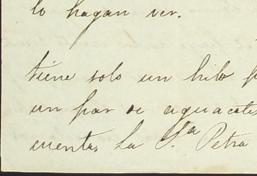 lo hagan ver.
tiene solo un hilo p
un par de aguacates
cuentas La S.ra Petra